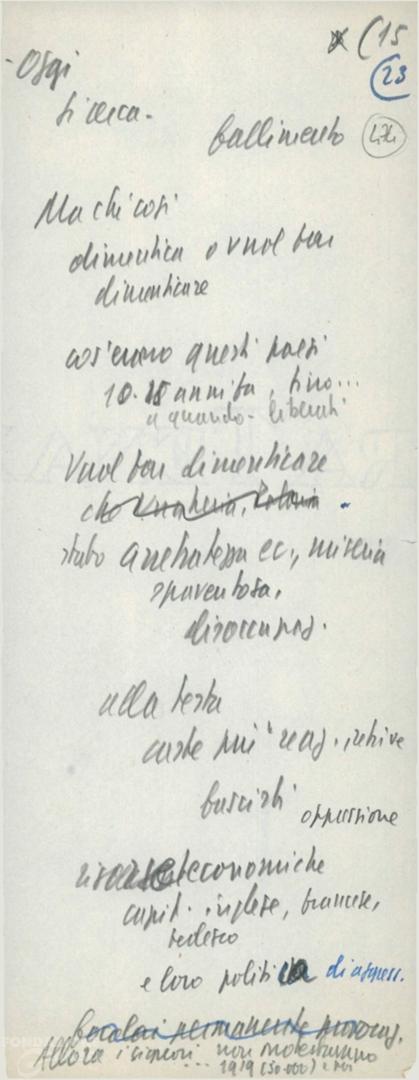 (15
- Oggi
(23
si cerca -
fallimento
Ma chi così
dimentica o vuol far
dimenticare
cos'erano questi paesi
10-15 anni fa, fino...
a quando - liberati
Vuol far dimenticare
che Ungheria, Polonia
stato arretratezza ec., miseria
spaventosa,
disoccupaz.
alla testa
caste più reaz., retrive
fascisti
oppressione
risorse economiche
capit. inglese, francese,
tedesco
e loro politica di aggress.
focolai permanente provoc.
Allora i signori non
1919 (50.000)